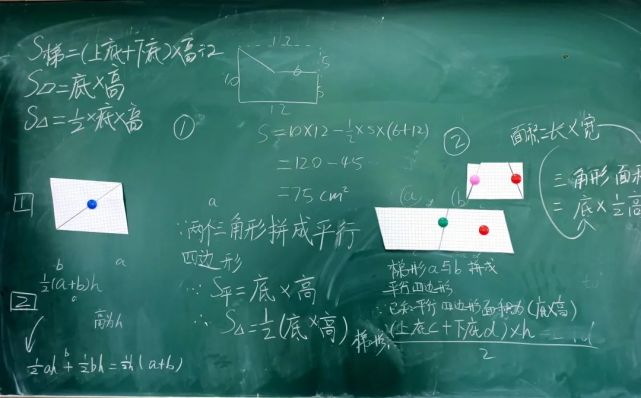 S梯=(上底+下底)×高÷2
S▱=底×高
S△=½×底×高
①
12
10
6
5
5
12
S=10×12-½×5×(6+12)
=120-45
=75cm²
②
面积=长×宽
三角形面积
=底×½高
1
a
∵两个三角形拼成平行
四边形
∵S平=底×高
∴S△=½(底×高)
b
a
½(a+b)h
2
高为h
½ah+½bh=½h(a+b)
(a)
(b)
梯形a与b拼成
平行四边形
∵已知平行四边形面积为(底×高)
(上底c+下底d)×h
2